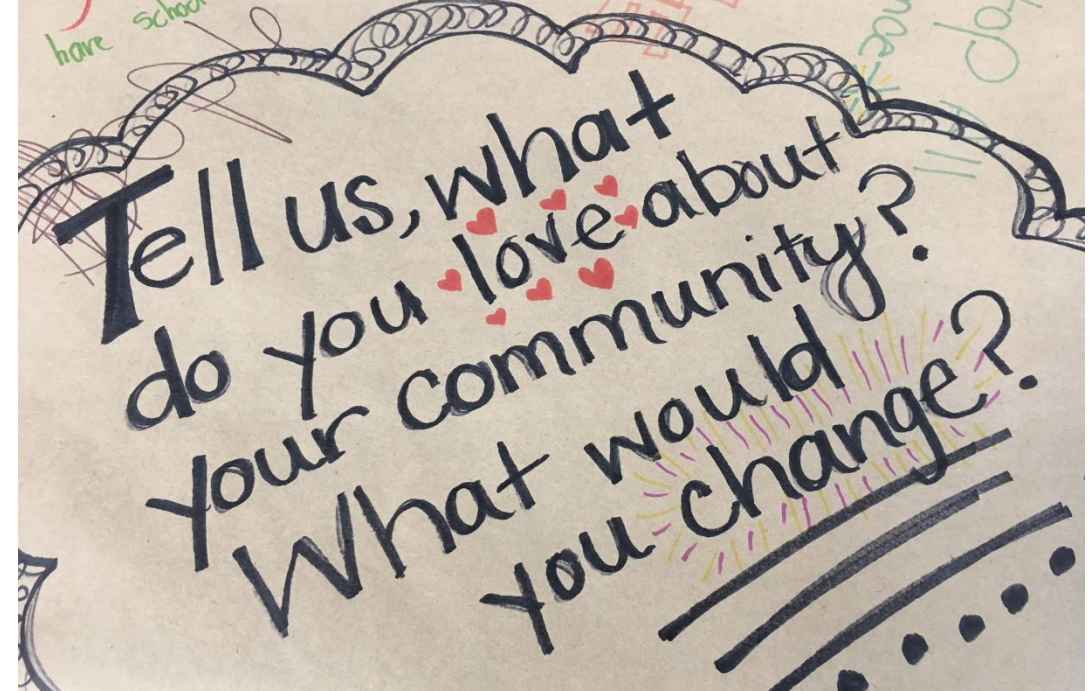 have school
Tell us, what
do you love about
your community?
What would
you change?